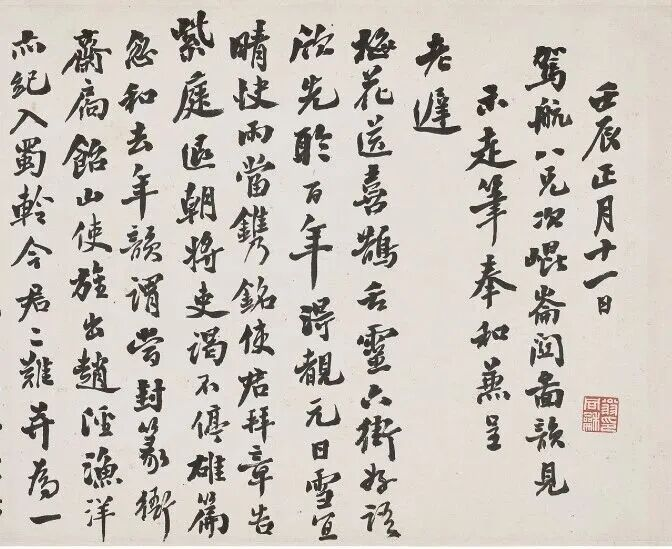 壬辰正月十一日
駕航八兄次崐崙關圖韻見
示走筆奉和兼呈
老遲
梅花送喜鵲舌靈六街好語
欣先聆百年得覩元日雪宣
晴快雨當鐫銘使君拜章告
紫庭朝將吏謁不停雄篇
忽和去年韻謂當封篆銜
齋扃飴山使旌出趙涇漁洋
亦紀入蜀軨今君二難并為一